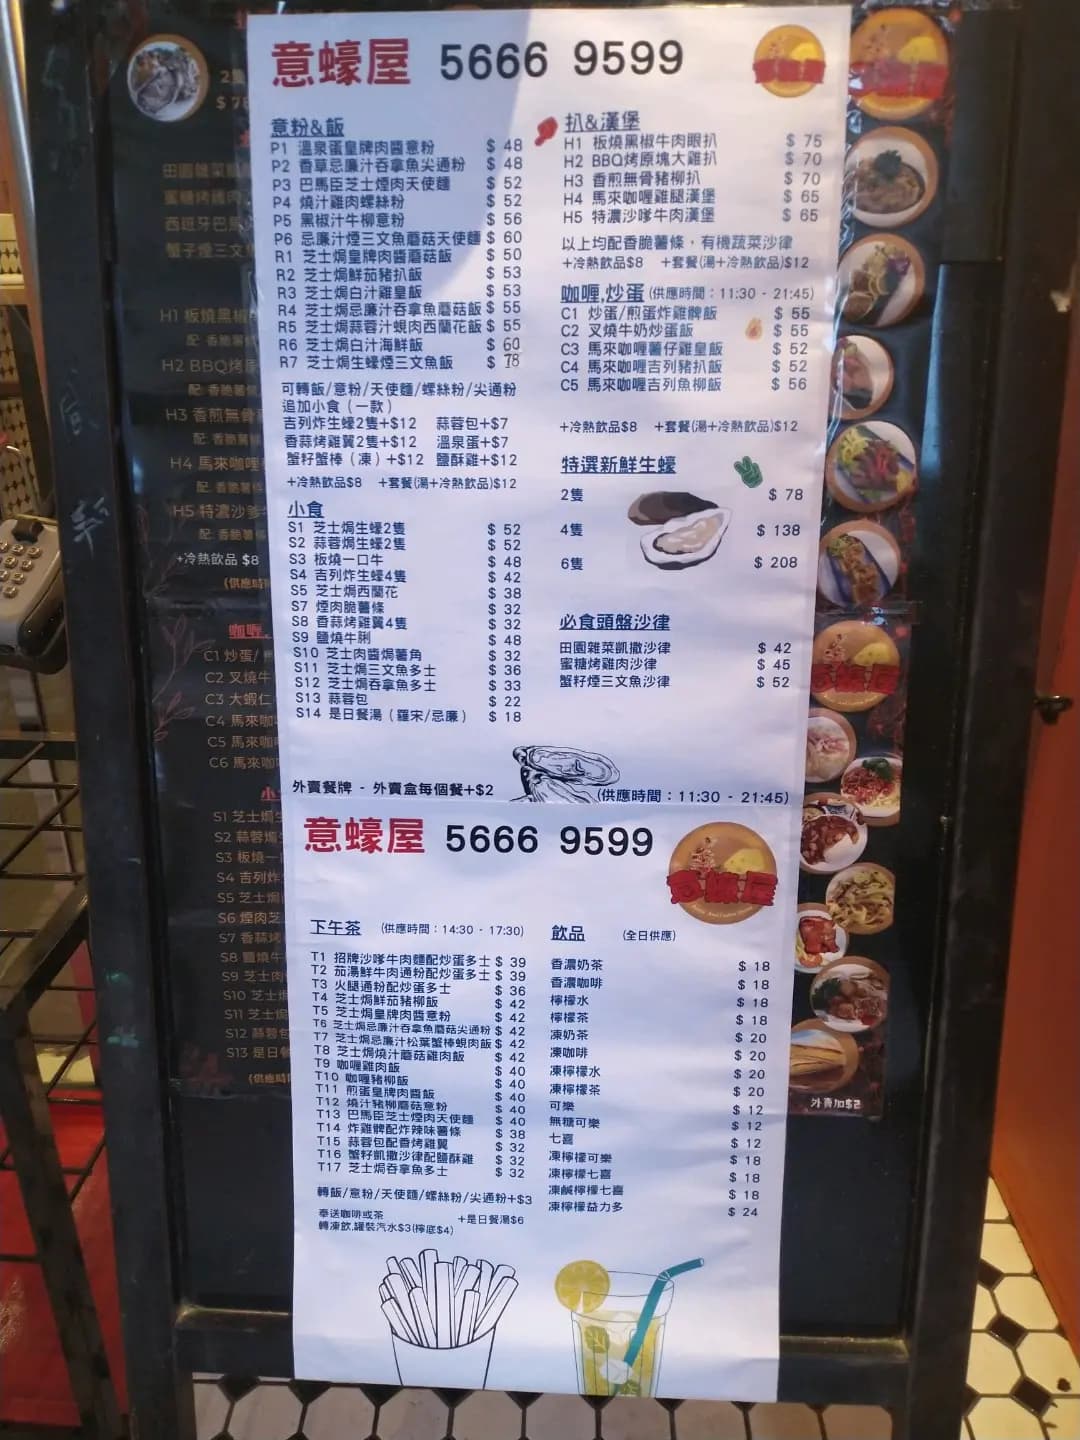 意蠔屋 5666 9599
意粉&飯
P1 溫泉蛋皇牌肉醬意粉 $ 48
P2 香草忌廉汁吞拿魚尖通粉 $ 48
P3 巴馬臣芝士煙肉天使麵 $ 52
P4 燒汁雞肉螺絲粉 $ 52
P5 黑椒汁牛柳意粉 $ 56
P6 忌廉汁煙三文魚蘑菇天使麵 $ 60
R1 芝士焗皇牌肉醬蘑菇飯 $ 50
R2 芝士焗鮮茄豬扒飯 $ 53
R3 芝士焗白汁雞皇飯 $ 53
R4 芝士焗忌廉汁吞拿魚蘑菇飯 $ 55
R5 芝士焗蒜蓉汁蜆肉西蘭花飯 $ 55
R6 芝士焗白汁海鮮飯 $ 60
R7 芝士焗生蠔煙三文魚飯 $ 78
可轉飯/意粉/天使麵/螺絲粉/尖通粉
追加小食（一款）
吉列炸生蠔2隻+$12 蒜蓉包+$7
香蒜烤雞翼2隻+$12 溫泉蛋+$7
蟹籽蟹棒（凍）+$12 鹽酥雞+$12
+冷熱飲品$8 +套餐(湯+冷熱飲品)$12
小食
S1 芝士焗生蠔2隻 $ 52
S2 蒜蓉焗生蠔2隻 $ 52
S3 板燒一口牛 $ 48
S4 吉列炸生蠔4隻 $ 42
S5 芝士焗西蘭花 $ 38
S7 煙肉脆薯條 $ 32
S8 香蒜烤雞翼4隻 $ 32
S9 鹽燒牛脷 $ 48
S10 芝士肉醬焗薯角 $ 32
S11 芝士焗三文魚多士 $ 36
S12 芝士焗吞拿魚多士 $ 33
S13 蒜蓉包 $ 22
S14 是日餐湯（羅宋/忌廉） $ 18
外賣餐牌 - 外賣盒每個餐+$2
扒&漢堡
H1 板燒黑椒牛肉眼扒 $ 75
H2 BBQ烤原塊大雞扒 $ 70
H3 香煎無骨豬柳扒 $ 70
H4 馬來咖喱雞腿漢堡 $ 65
H5 特濃沙嗲牛肉漢堡 $ 65
以上均配香脆薯條，有機蔬菜沙律
+冷熱飲品$8 +套餐(湯+冷熱飲品)$12
咖喱,炒蛋 (供應時間：11:30 - 21:45)
C1 炒蛋/煎蛋炸雞髀飯 $ 55
C2 叉燒牛奶炒蛋飯 $ 55
C3 馬來咖喱薯仔雞皇飯 $ 52
C4 馬來咖喱吉列豬扒飯 $ 52
C5 馬來咖喱吉列魚柳飯 $ 56
+冷熱飲品$8 +套餐(湯+冷熱飲品)$12
特選新鮮生蠔
2隻 $ 78
4隻 $ 138
6隻 $ 208
必食頭盤沙律
田園雜菜凱撒沙律 $ 42
蜜糖烤雞肉沙律 $ 45
蟹籽煙三文魚沙律 $ 52
(供應時間：11:30 - 21:45)
意蠔屋 5666 9599
意蠔屋
下午茶 (供應時間：14:30 - 17:30)
T1 招牌沙嗲牛肉麵配炒蛋多士 $ 39
T2 茄湯鮮牛肉通粉配炒蛋多士 $ 39
T3 火腿通粉配炒蛋多士 $ 36
T4 芝士焗鮮茄豬柳飯 $ 42
T5 芝士焗皇牌肉醬意粉 $ 42
T6 芝士焗忌廉汁吞拿魚蘑菇尖通粉 $ 42
T7 芝士焗忌廉汁松葉蟹棒蜆肉飯 $ 42
T8 芝士焗燒汁蘑菇雞肉飯 $ 42
T9 咖喱雞肉飯 $ 40
T10 咖喱豬柳飯 $ 40
T11 煎蛋皇牌肉醬飯 $ 40
T12 燒汁豬柳蘑菇意粉 $ 40
T13 巴馬臣芝士煙肉天使麵 $ 40
T14 炸雞髀配炸辣味薯條 $ 38
T15 蒜蓉包配香烤雞翼 $ 32
T16 蟹籽凱撒沙律配鹽酥雞 $ 32
T17 芝士焗吞拿魚多士 $ 32
轉飯/意粉/天使麵/螺絲粉/尖通粉+$3
奉送咖啡或茶 +是日餐湯$6
轉凍飲,罐裝汽水$3(檸底$4)
飲品 (全日供應)
香濃奶茶 $ 18
香濃咖啡 $ 18
檸檬水 $ 18
檸檬茶 $ 18
凍奶茶 $ 20
凍咖啡 $ 20
凍檸檬水 $ 20
凍檸檬茶 $ 20
可樂 $ 12
無糖可樂 $ 12
七喜 $ 12
凍檸檬可樂 $ 18
凍檸檬七喜 $ 18
凍鹹檸檬七喜 $ 18
凍檸檬益力多 $ 24
田園雜菜
蜜糖烤雞肉
西班牙巴馬
蟹子煙三文
H1 板燒黑椒
H2 BBQ烤原
H3 香煎無骨
H4 馬來咖喱
H5 特濃沙嗲
+冷熱飲品 $8
C1 炒蛋/
C2 叉燒牛
C3 大蝦仁
C4 馬來咖
C5 馬來咖
C6 馬來咖
S1 芝士焗
S2 蒜蓉焗
S3 板燒一
S4 吉列炸
S5 芝士焗
S6 煙肉芝
S7 香蒜烤
S8 鹽燒牛
S9 芝士肉
S10 芝士焗
S11 芝士
S12 蒜蓉包
S13 是日餐
外賣加$2